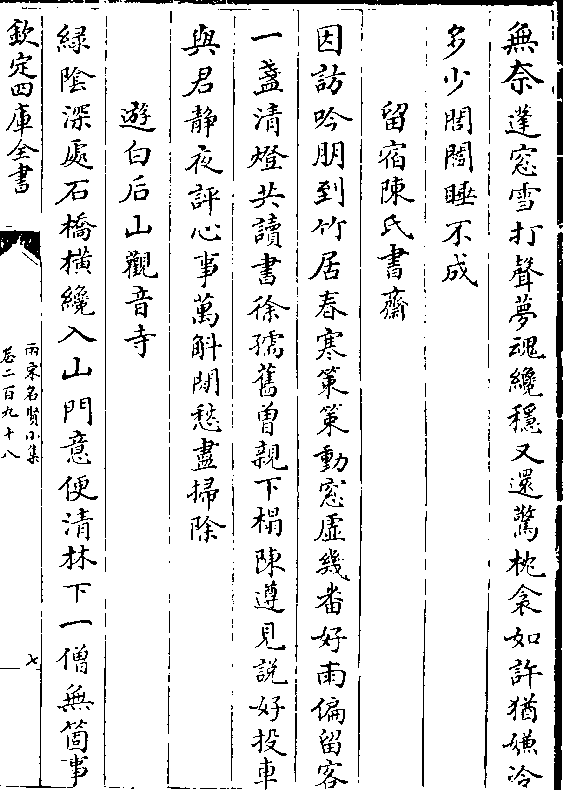 無奈蓬窓雪打聲夢魂纔穩又還驚枕衾如許猶嫌冷
多少閨閣睡不成
留宿陳氏書齋
因訪吟朋到竹居春寒策策動窓虛幾番好雨偏留客
一盞清燈共讀書徐孺舊曾親下榻陳遵見說好投車
與君静夜評心事萬斛閒愁盡掃除
遊白后山觀音寺
緑陰深處石橋横纔入山門意便清林下一僧無箇事
欽定四庫全書
兩宋名賢小集
卷二百九十八
七